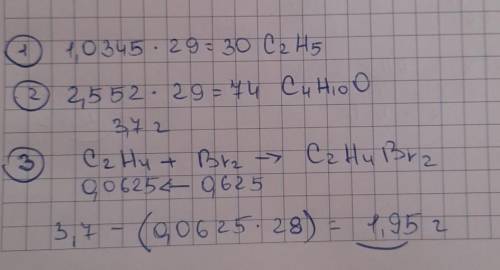 ① 1,0345 · 29 = 30 C2H5
② 2,552 · 29 = 74 C4H10O
3,7 г
③ C2H4 + Br2 → C2H4Br2
0,0625 ← 0,625
3,7 - (0,0625 · 28) = 1,95 г